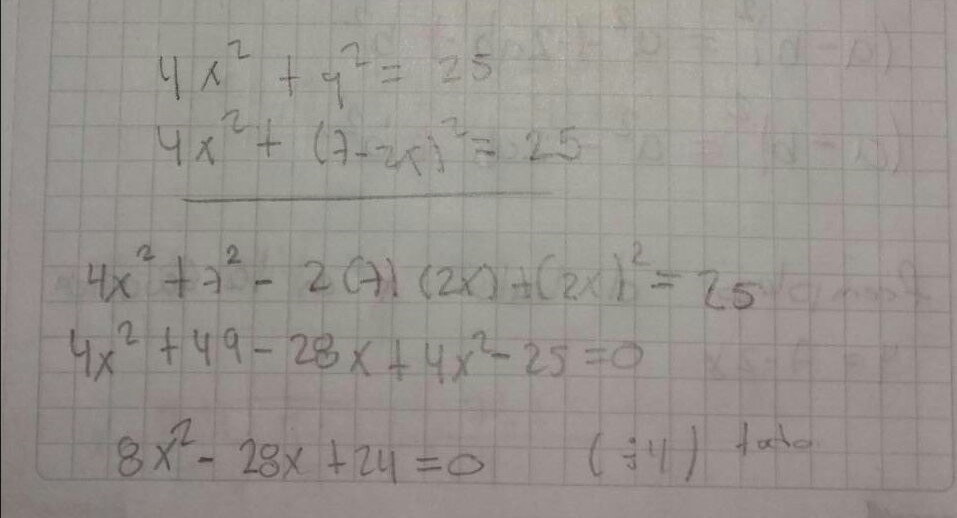 4x² + y² = 25
4x² + (7-2x)² = 25
4x² + 7² - 2(7)(2x) + (2x)² = 25
4x² + 49 - 28x + 4x² - 25 = 0
8x² - 28x + 24 = 0 (÷4) todo